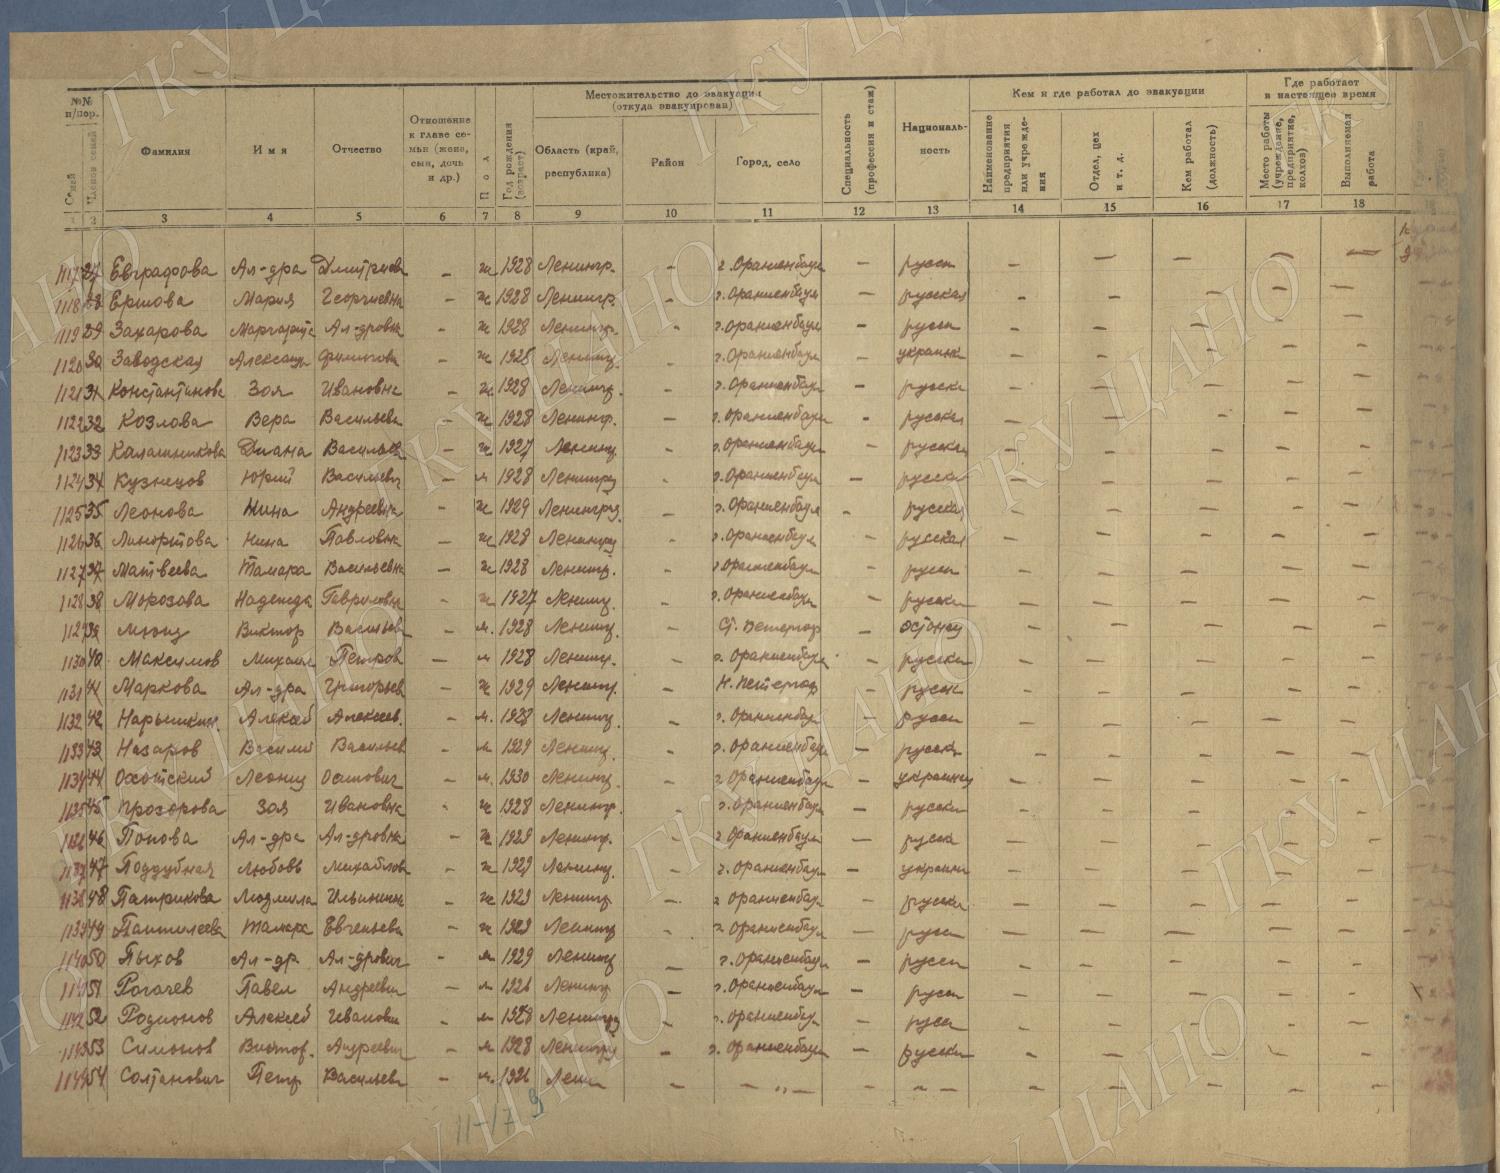 №№ п/пор. Местожительство до эвакуации (откуда эвакуирован) Кем и где работал до эвакуации Где работает в настоящее время
Семей Членов семей Фамилия Имя Отчество Отношение к главе семьи (жена, сын, дочь и др.) Пол Год рождения (возраст) Область (край, республика) Район Город, село Специальность (профессия и стаж) Национальность Наименование предприятия или учреждения Отдел, цех и т. д. Кем работал (должность) Место работы (учреждение, предприятие, колхоз) Выполняемая работа
1 2 3 4 5 6 7 8 9 10 11 12 13 14 15 16 17 18
1117 27 Евграфова Ал-дра Дмитриев – ж 1928 Ленингр. – г. Ораниенбаум – русск – – – – –
1118 28 Ершова Мария Георгиевна – ж 1928 Ленингр. – г. Ораниенбаум – русская – – – – –
1119 29 Захарова Маргарита Ал-дровна – ж 1928 Ленингр. – г. Ораниенбаум – русск – – – – –
1120 30 Заводская Александ – ж 1925 Ленинг. – г. Ораниенбаум – украинк – – – – –
1121 31 Константинова Зоя Ивановна – ж 1928 Ленингр. – г. Ораниенбаум – русска – – – – –
1122 32 Козлова Вера Васильевн – ж 1928 Ленингр. – г. Ораниенбаум – русская – – – – –
1123 33 Калашникова Диана Васильев – ж 1927 Ленинг. – г. Ораниенбаум – русская – – – – –
1124 34 Кузнецов Юрий Васильевич – м 1928 Ленингр – г. Ораниенбаум – русск – – – – –
1125 35 Леонова Нина Андреевна – ж 1929 Ленингр. – г. Ораниенбаум – русская – – – – –
1126 36 Нина Павловна – ж 1928 Ленингр – г. Ораниенбаум – русская – – – – –
1127 37 Матвеева Тамара Васильевна – ж 1928 Ленингр. – г. Ораниенбаум – русск – – – – –
1128 38 Морозова Надежда Гавриловна – ж 1927 Ленинг. – г. Ораниенбаум – русска – – – – –
1129 39 Виктор Васильев – м. 1928 Ленинг. – Ст. Петергоф – эстонец – – – – –
1130 40 Максимов Михаил Петров – м 1928 Ленинг. – г. Ораниенбаум – русски – – – – –
1131 41 Маркова Ал-дра Григорьев – ж 1929 Ленинг. – Н. Петергоф – русск – – – – –
1132 42 Нарышкин Алексей Алексеев. – м. 1928 Ленинг. – г. Ораниенбаум – русск – – – – –
1133 43 Назаров Василий Васильев – м 1929 Ленинг. – г. Ораниенбаум – русск – – – – –
1134 44 Охотский Леонид Осипович – м. 1930 Ленинг. – г. Ораниенбаум – украинец – – – – –
1135 45 Прозорова Зоя Ивановна – ж 1928 Ленингр. – г. Ораниенбаум – русска – – – – –
1136 46 Попова Ал-дра Ал-дровна – ж 1929 Ленингр. – г. Ораниенбаум – русска – – – – –
1137 47 Поддубная Любовь Михайлов – ж 1929 Ленинг. – г. Ораниенбаум – украинк – – – – –
1138 48 Патрикова Людмила Ильинична – ж 1929 Ленингр – г. Ораниенбаум – русска – – – – –
1139 49 Пантилеева Тамара Евгеньевн – ж 1929 Ленингр – г. Ораниенбаум – русск – – – – –
1140 50 Пыхов Ал-др Ал-дрович – м 1929 Ленинг – г. Ораниенбаум – русск – – – – –
1141 51 Рогачев Павел Андреевич – м 1926 Ленингр – г. Ораниенбаум – русск – – – – –
1142 52 Родионов Алексей Иванович – м 1928 Ленингр – г. Ораниенбаум – русск – – – – –
1143 53 Симонов Виктор. Андреевич – м 1928 Ленингр – г. Ораниенбаум – русски – – – – –
1144 54 Солтанович Петр Васильев – м. 1926 Лени – – „ – – – „ – – – – – –
11-17
ГКУ ЦАНО